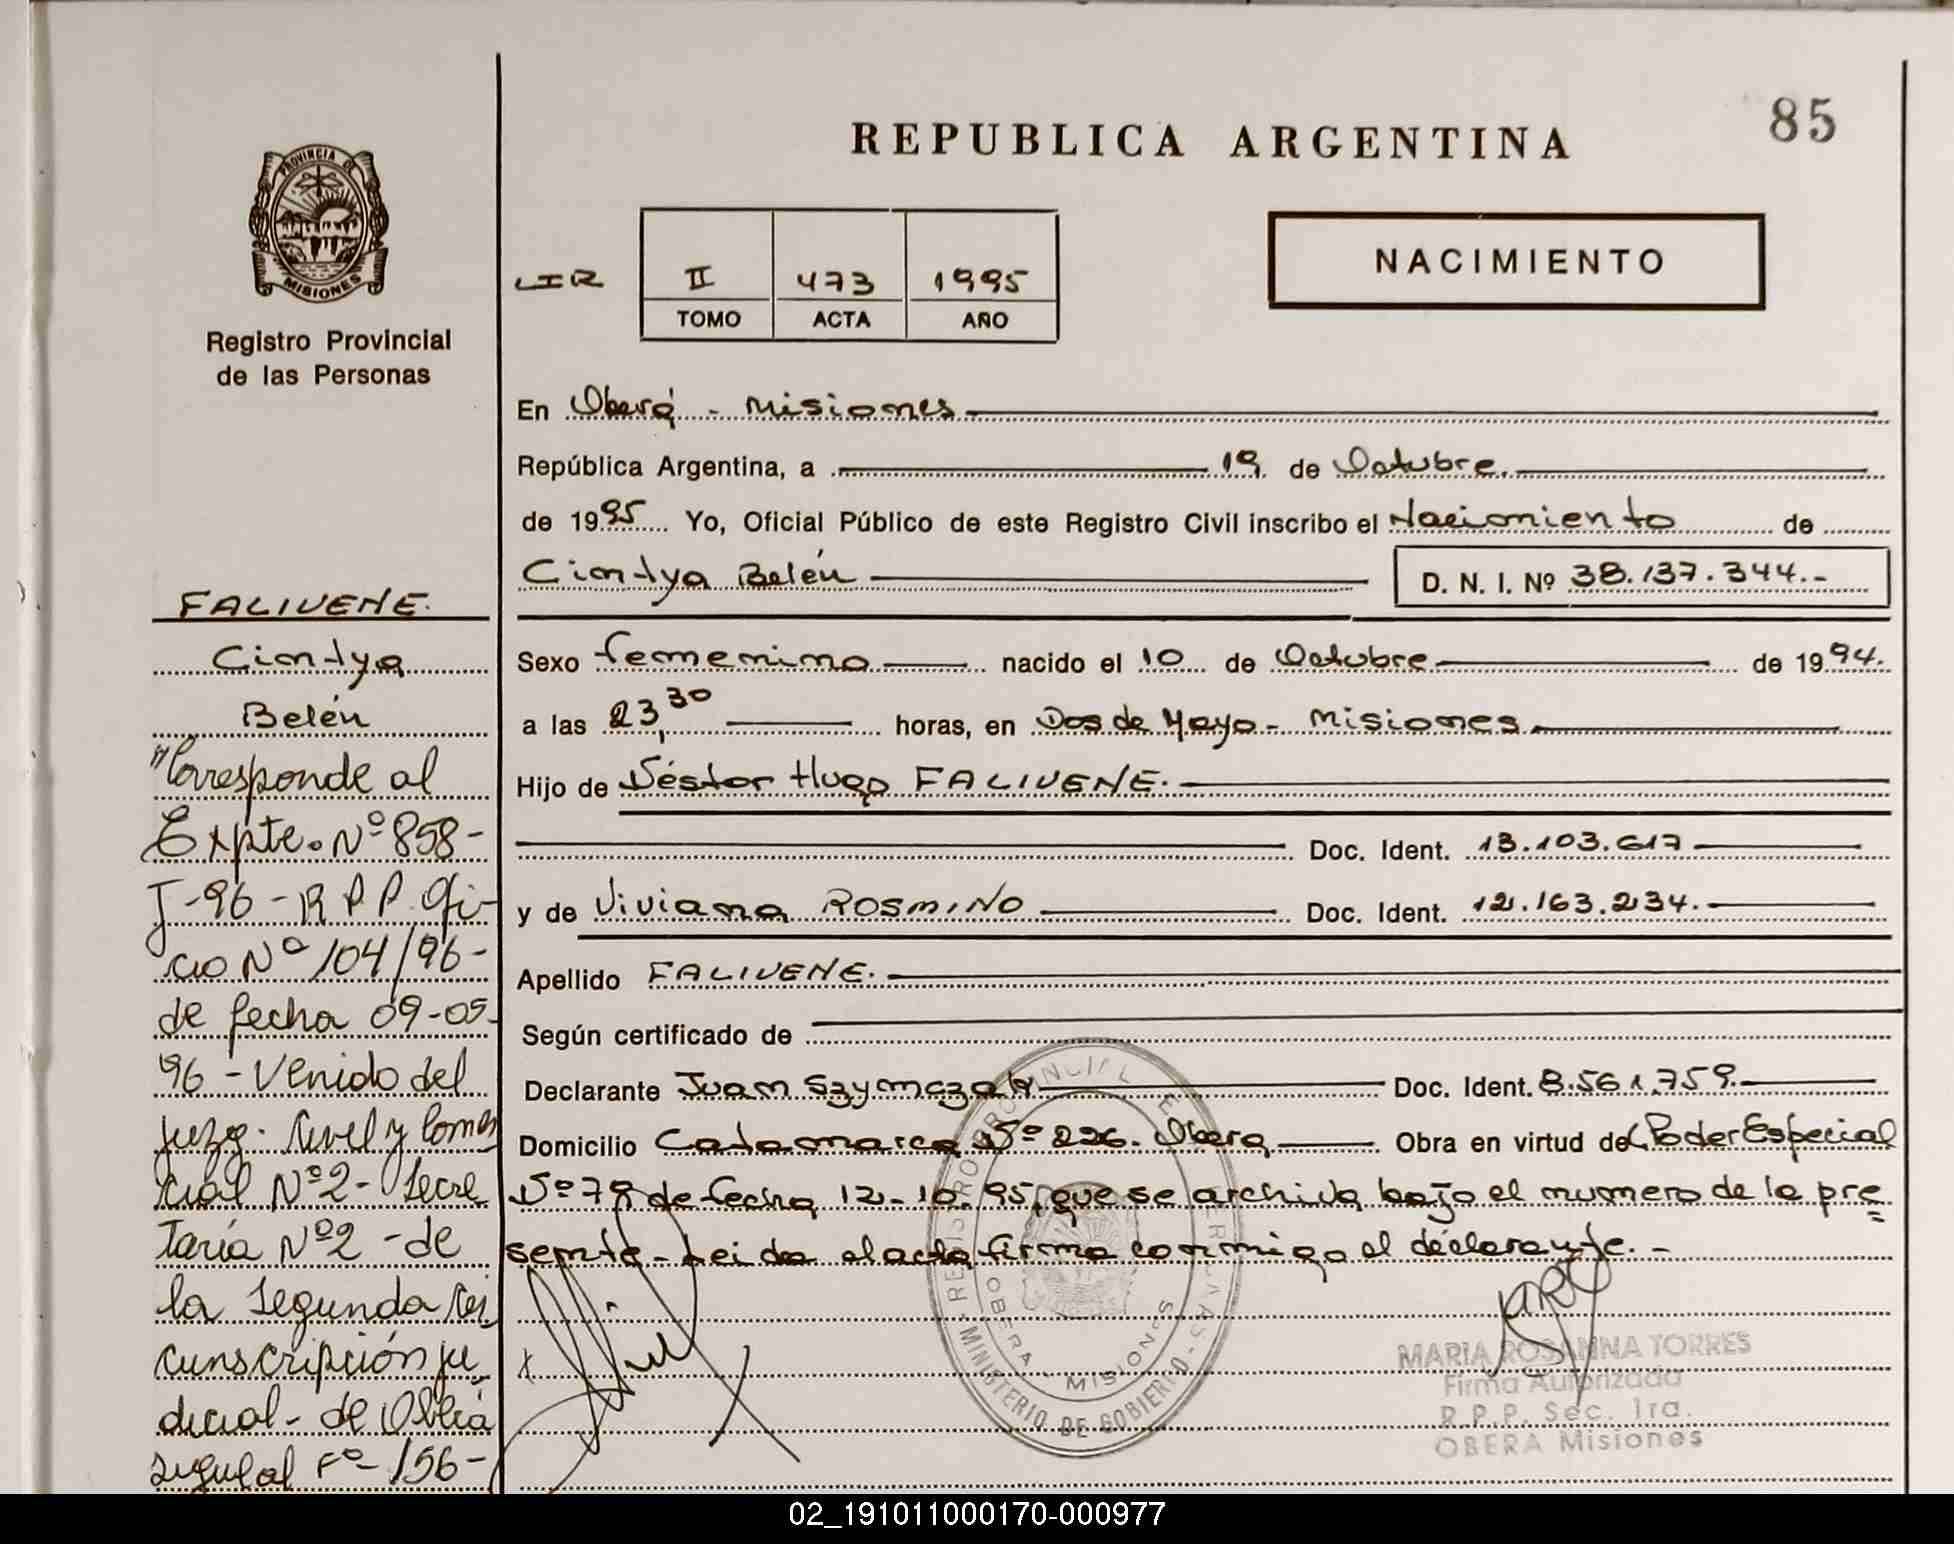 85
REPUBLICA ARGENTINA
NACIMIENTO
PROVINCIA DE
MISIONES
Registro Provincial
de las Personas
LIR II 473 1995
TOMO ACTA AÑO
En Oberá - Misiones
República Argentina, a 19 de Octubre.
de 1995 Yo, Oficial Público de este Registro Civil inscribo el Nacimiento de
Cintya Belén D. N. I. Nº 38.137.344.-
Sexo femenino nacido el 10 de Octubre de 1994.
a las 23,30 horas, en Dos de Mayo - Misiones
Hijo de Néstor Hugo FALIVENE.
Doc. Ident. 13.103.617
y de Viviana ROSMINO Doc. Ident. 12.163.234.
Apellido FALIVENE.
Según certificado de
Declarante Juan Szymczak Doc. Ident. 8.561.759.
Domicilio Catamarca Nº 226. Oberá Obra en virtud del Poder Especial
Nº 79 de fecha 12-10-95, que se archiva bajo el numero de la pre
sente - Leida el acta firma conmigo el declarante. -
FALIVENE.
Cintya
Belén
"Corresponde al
Expte. Nº 858-
J-96 - R P P. Ofi-
cio Nº 104/96-
de fecha 09-05-
96 - Venido del
Juzg. Civil y Comer
cial Nº 2 - Secre
taría Nº 2 - de
la Segunda Cir
cunscripción Ju
dicial - de Oberá
sigue al Fº - 156 -
MINISTERIO DE GOBIERNO
OBERA MISIONES
MARIA ROSANNA TORRES
Firma Autorizada
R.P.P. Sec. 1ra.
OBERA Misiones
02_191011000170-000977